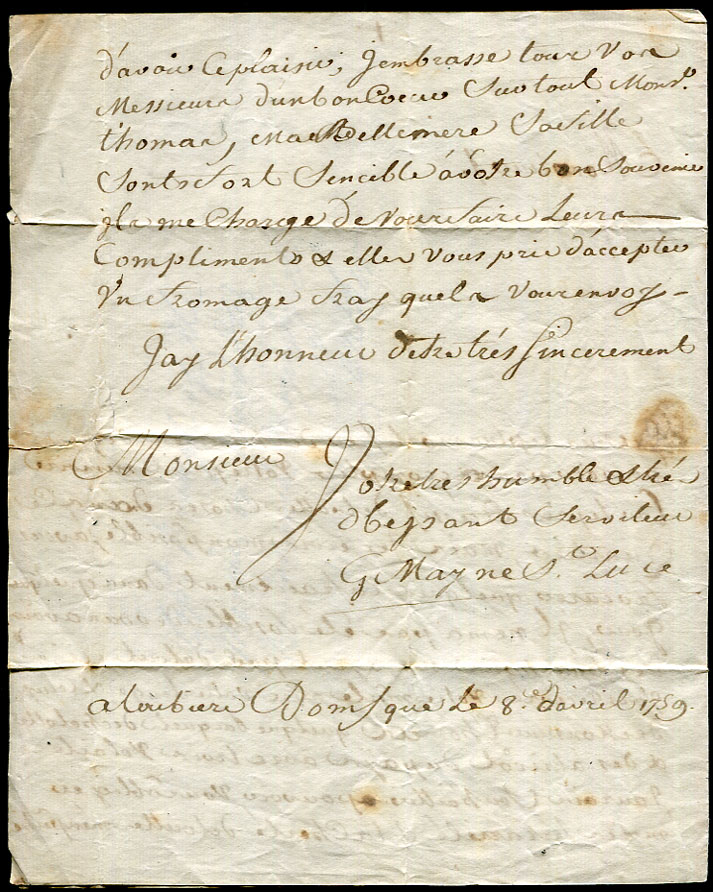 d'avoir Ceplaisir, Jembrasse tour Vos
Messieurs dunbonCoeur Surtout Monsr.
thomas, Mademelle mere Safille
Sontsfort Sencible àvotre bon Souvenir
jls me Charge de Vousfaire Leurs
Compliments & elles Vous prie d'accepter
Vn fromage frais quels Vousenvoy –
Jay L'honneur detre trés Sincerement
Monsieur
Votre tres humble & tré
Obeysant Serviteur
G Mayne St. Luce
Domjque Le 8e. d'avril 1759.